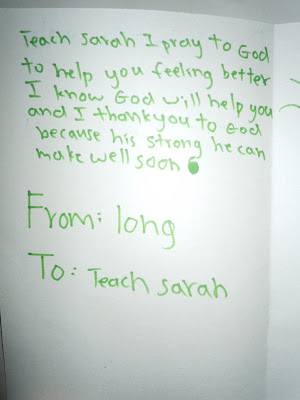 Teach Sarah I pray to God
to help you feeling better
I know God will help you
and I thankyou to God
because his strong he can
make well soon
From: long
To: Teach sarah